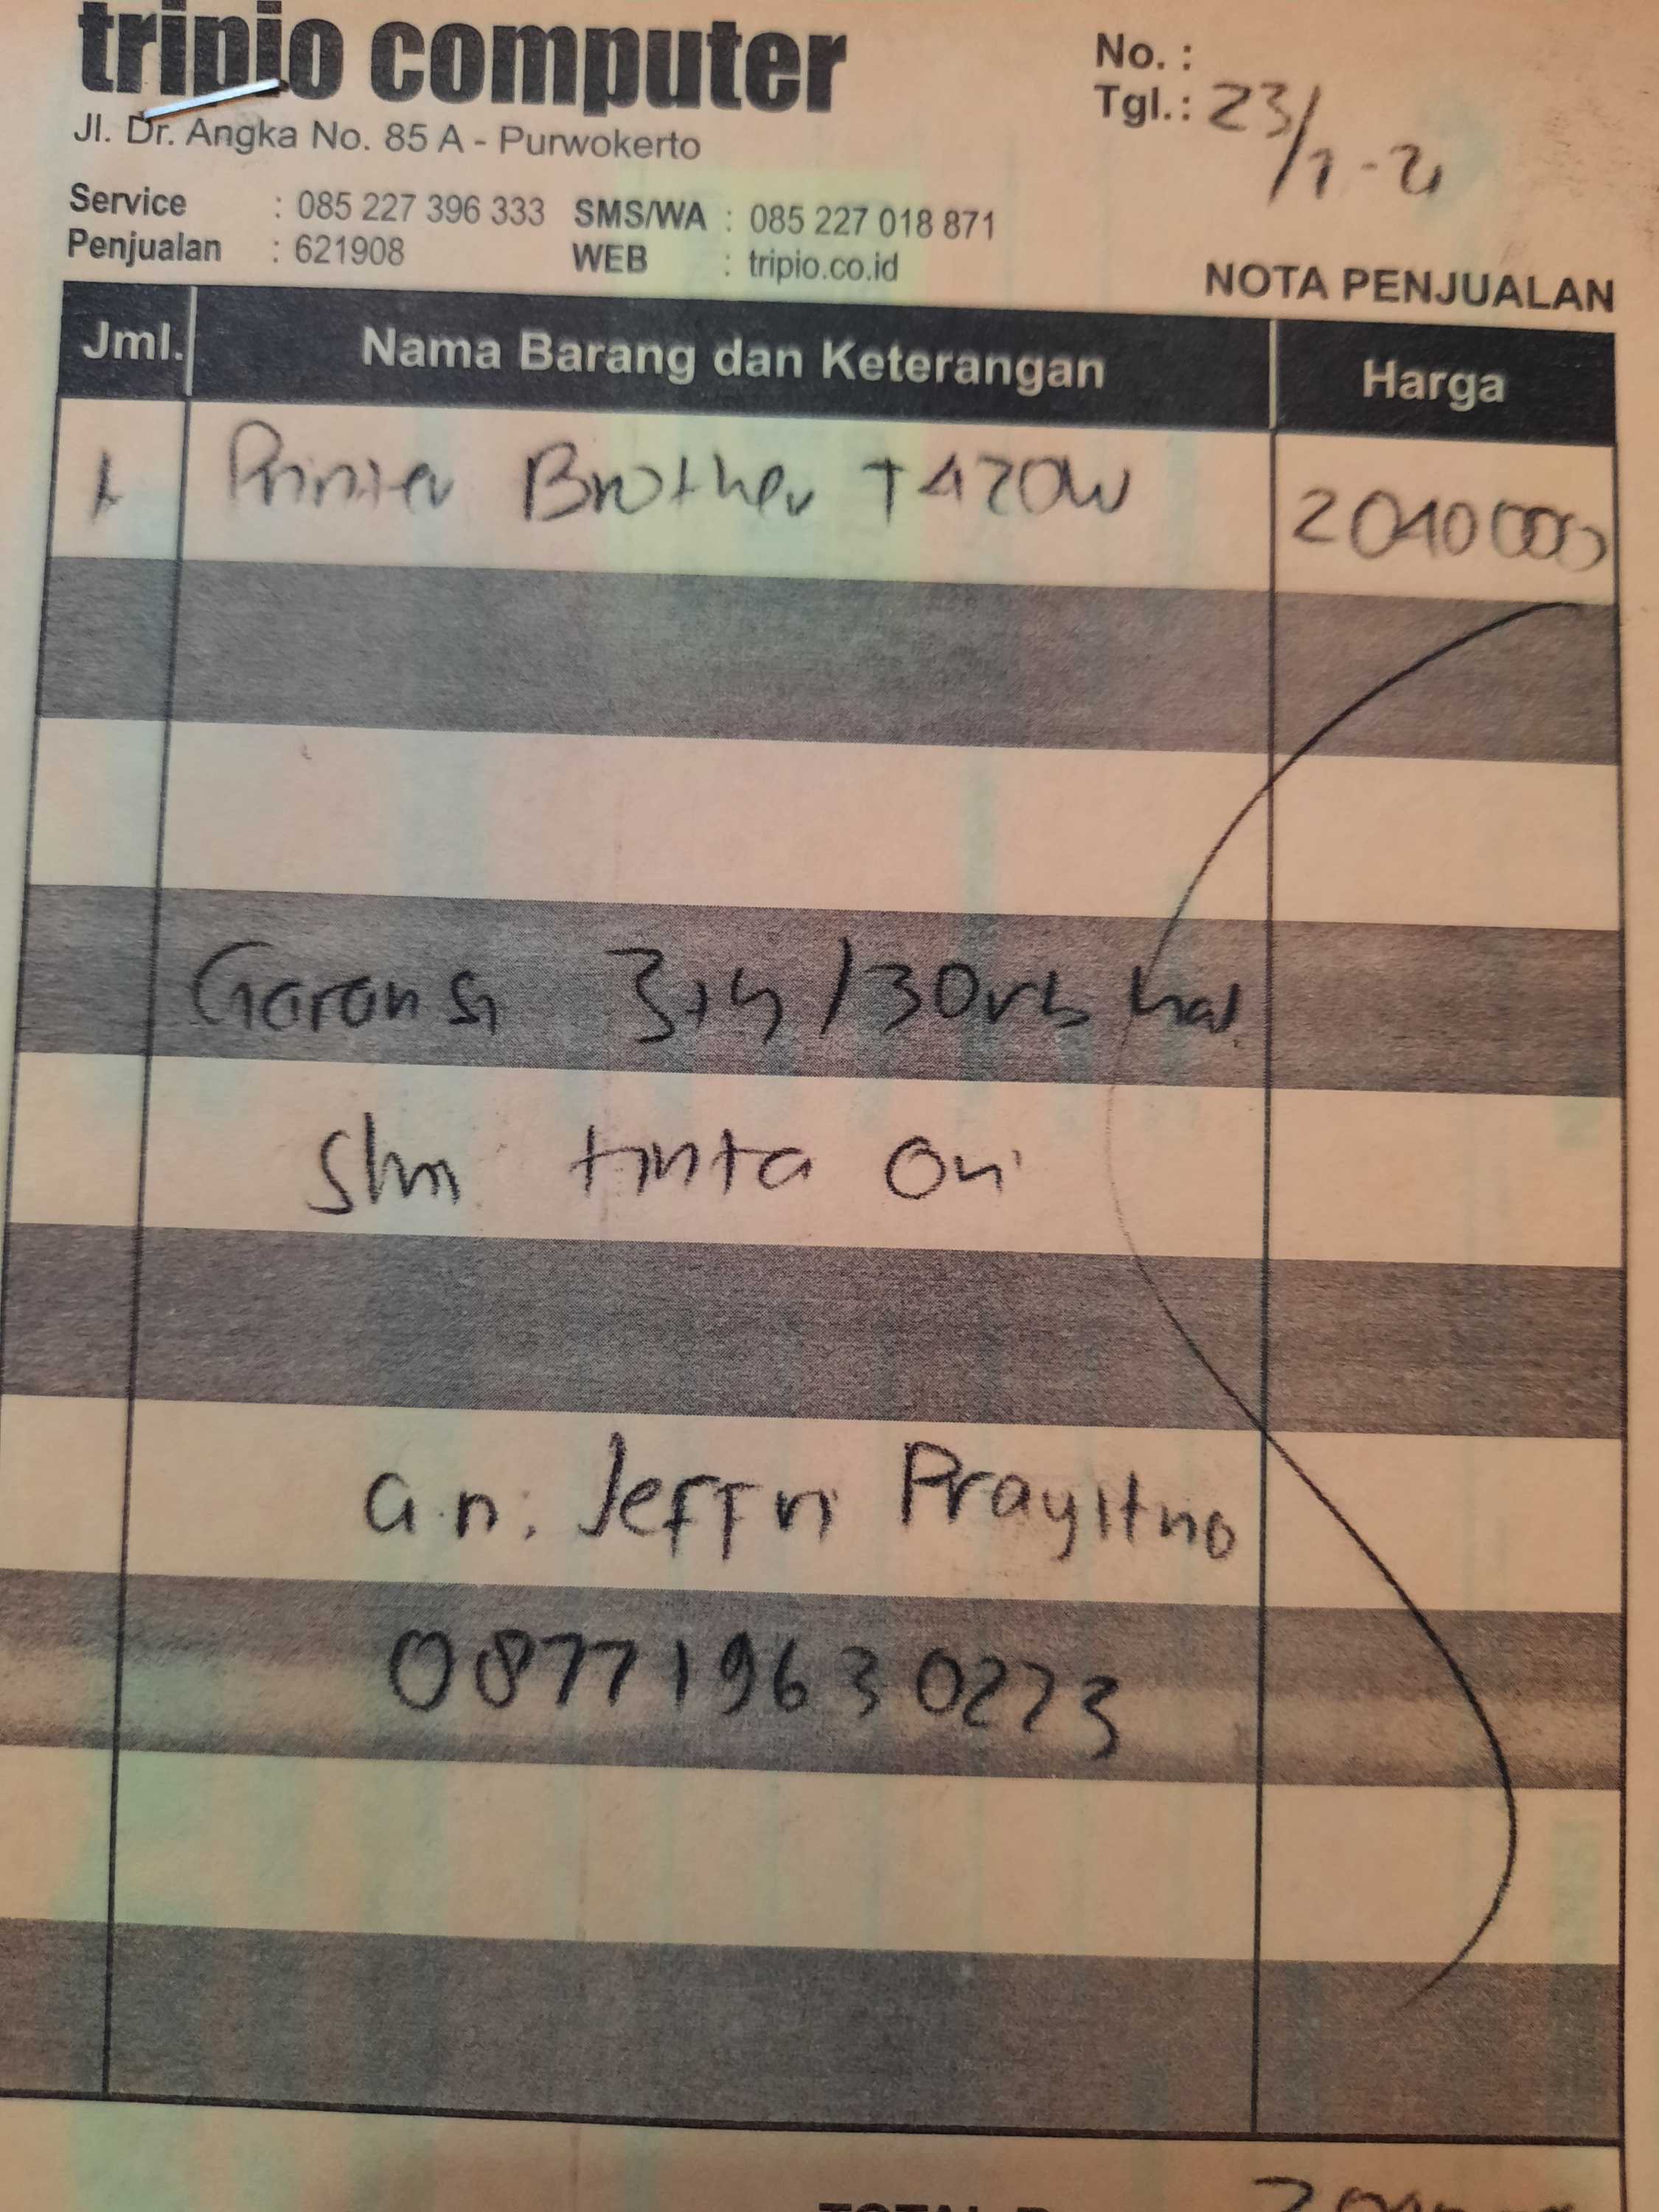 tripio computer
Jl. Dr. Angka No. 85 A - Purwokerto
No. :
Tgl. : 23/1-21
Service : 085 227 396 333 SMS/WA : 085 227 018 871
Penjualan : 621908 WEB : tripio.co.id
NOTA PENJUALAN
Jml. Nama Barang dan Keterangan Harga
1 Printer Brother T420W 2040000
Garansi 3th / 30rb hal
Slm tinta Ori
a.n. Jeffri Prayitno
0877 1963 0273
TOTAL